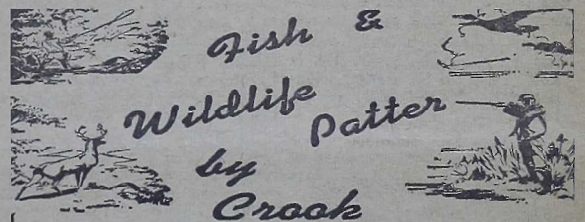 Fish &
Wildlife Patter
by
Crook